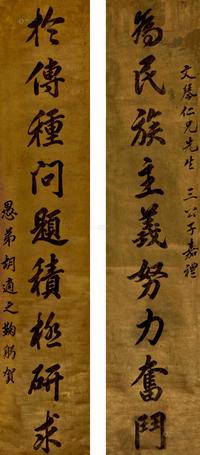 文滕仁兄先生 三公子嘉禮
為民族主義努力奮鬥
於傳種問題積極研求
愚弟胡適之鞠躬賀